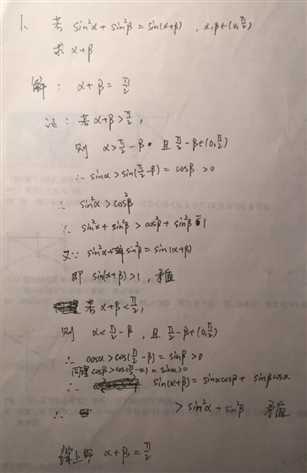 1. 若 sin²α + sin²β = sin(α+β) , α,β∈(0,π/2)
求 α+β
解: α+β = π/2
证: 若 α+β > π/2,
则 α > π/2 - β 且 π/2 - β∈(0,π/2)
∴ sinα > sin(π/2 - β) = cosβ > 0
∴ sin²α > cos²β
∴ sin²α + sin²β > cos²β + sin²β = 1
又∵ sin²α + sin²β = sin(α+β)
即 sin(α+β) > 1, 矛盾
若 α+β < π/2,
则 α < π/2 - β, 且 π/2 - β∈(0,π/2)
∴ cosα > cos(π/2 - β) = sinβ > 0
同理 cosβ > cos(π/2 - α) = sinα > 0
∴ sin(α+β) = sinαcosβ + sinβcosα
∴ > sin²α + sin²β 矛盾
综上所 α+β = π/2